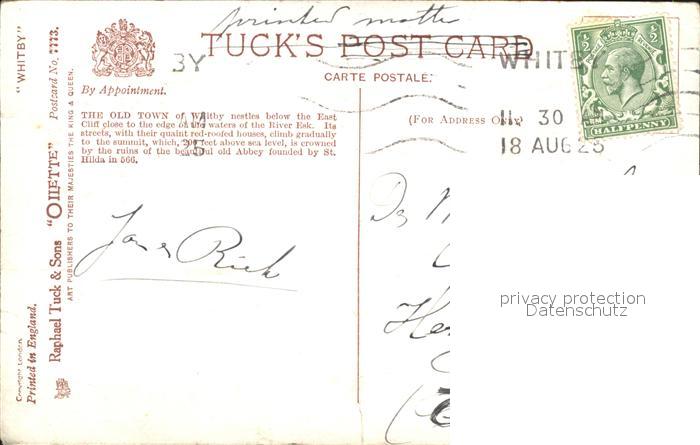 printed matter
TUCK'S POST CARD
CARTE POSTALE.
By Appointment.
(For Address Only.)
THE OLD TOWN of Whitby nestles below the East
Cliff close to the edge of the waters of the River Esk. Its
streets, with their quaint red-roofed houses, climb gradually
to the summit, which, 200 feet above sea level, is crowned
by the ruins of the beautiful old Abbey founded by St.
Hilda in 566.
"WHITBY" Postcard No. 7773.
Raphael Tuck & Sons "OILETTE"
ART PUBLISHERS TO THEIR MAJESTIES THE KING & QUEEN.
Copyright London.
Printed in England.
BY
WHITB
11. 30
18 AUG 25
HALFPENNY
Rick
privacy protection
Datenschutz